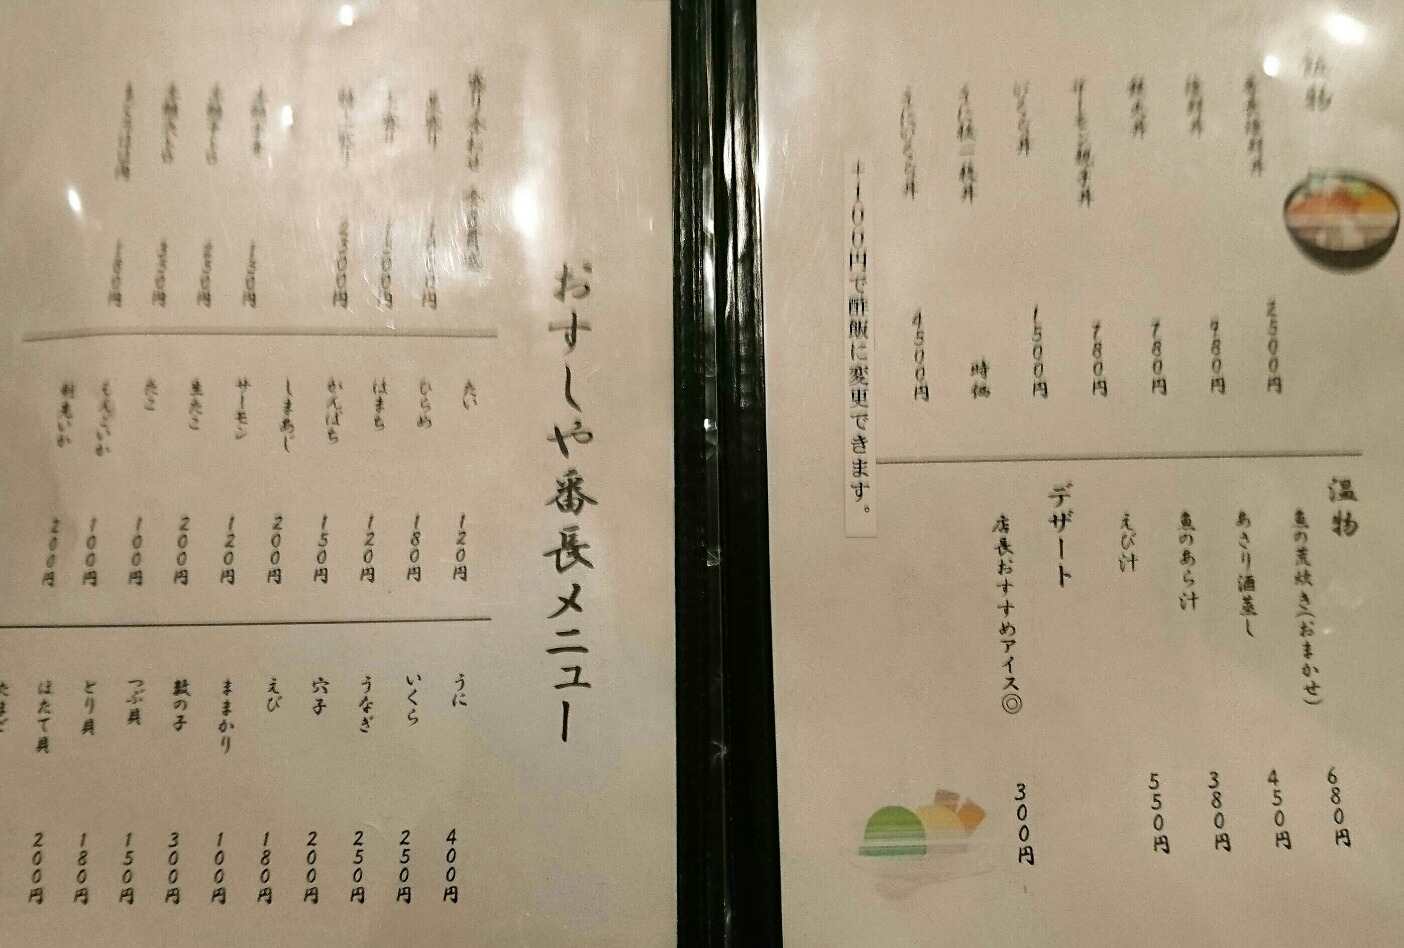 飯物
番長海鮮丼 2500円
海鮮丼 980円
鉄火丼 780円
サーモン親子丼 780円
いくら丼 1500円
うに 丼 時価
うにいくら丼 4500円
+100円で酢飯に変更できます。
温物
魚の荒炊き(おまかせ) 680円
あさり酒蒸し 450円
魚のあら汁 380円
えび汁 550円
デザート
店長おすすめアイス◎ 300円
おすしや番長メニュー
盛り合わせ
並盛り
上盛り 1500円
特上盛り 2500円
150円
たい 120円
ひらめ 180円
はまち 120円
かんぱち 150円
しまあじ 200円
サーモン 120円
生たこ 200円
たこ 100円
もんごいか 100円
剣先いか 200円
うに 400円
いくら 250円
うなぎ 250円
穴子 200円
えび 180円
ままかり 100円
数の子 300円
つぶ貝 150円
とり貝 180円
ほたて貝 200円
たまご